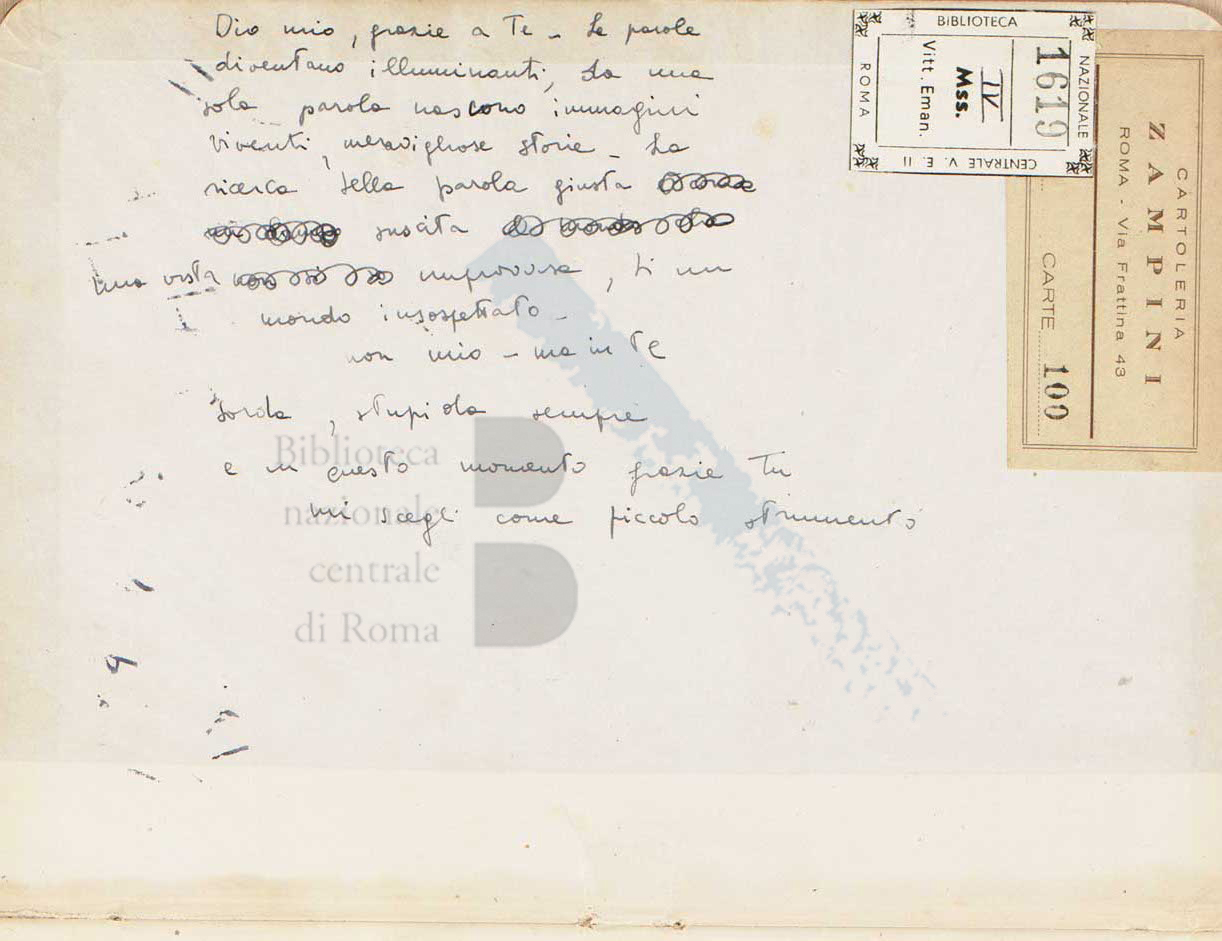 Dio mio, grazie a Te – Le parole
diventano illuminanti, da una
sola parola nascono immagini
viventi, meravigliose storie – La
ricerca della parola giusta
suscita
una vista improvvisa, di un
mondo insospettato –
non mio – ma in TE
Sorda, stupida sempre
e in questo momento grazie Tu
mi scegli come piccolo strumento
BIBLIOTECA
NAZIONALE
CENTRALE V. E. II
ROMA
1619
IV
Mss.
Vitt. Eman.
CARTOLERIA
ZAMPINI
ROMA - Via Frattina 43
CARTE 100
Biblioteca
nazionale
centrale
di Roma